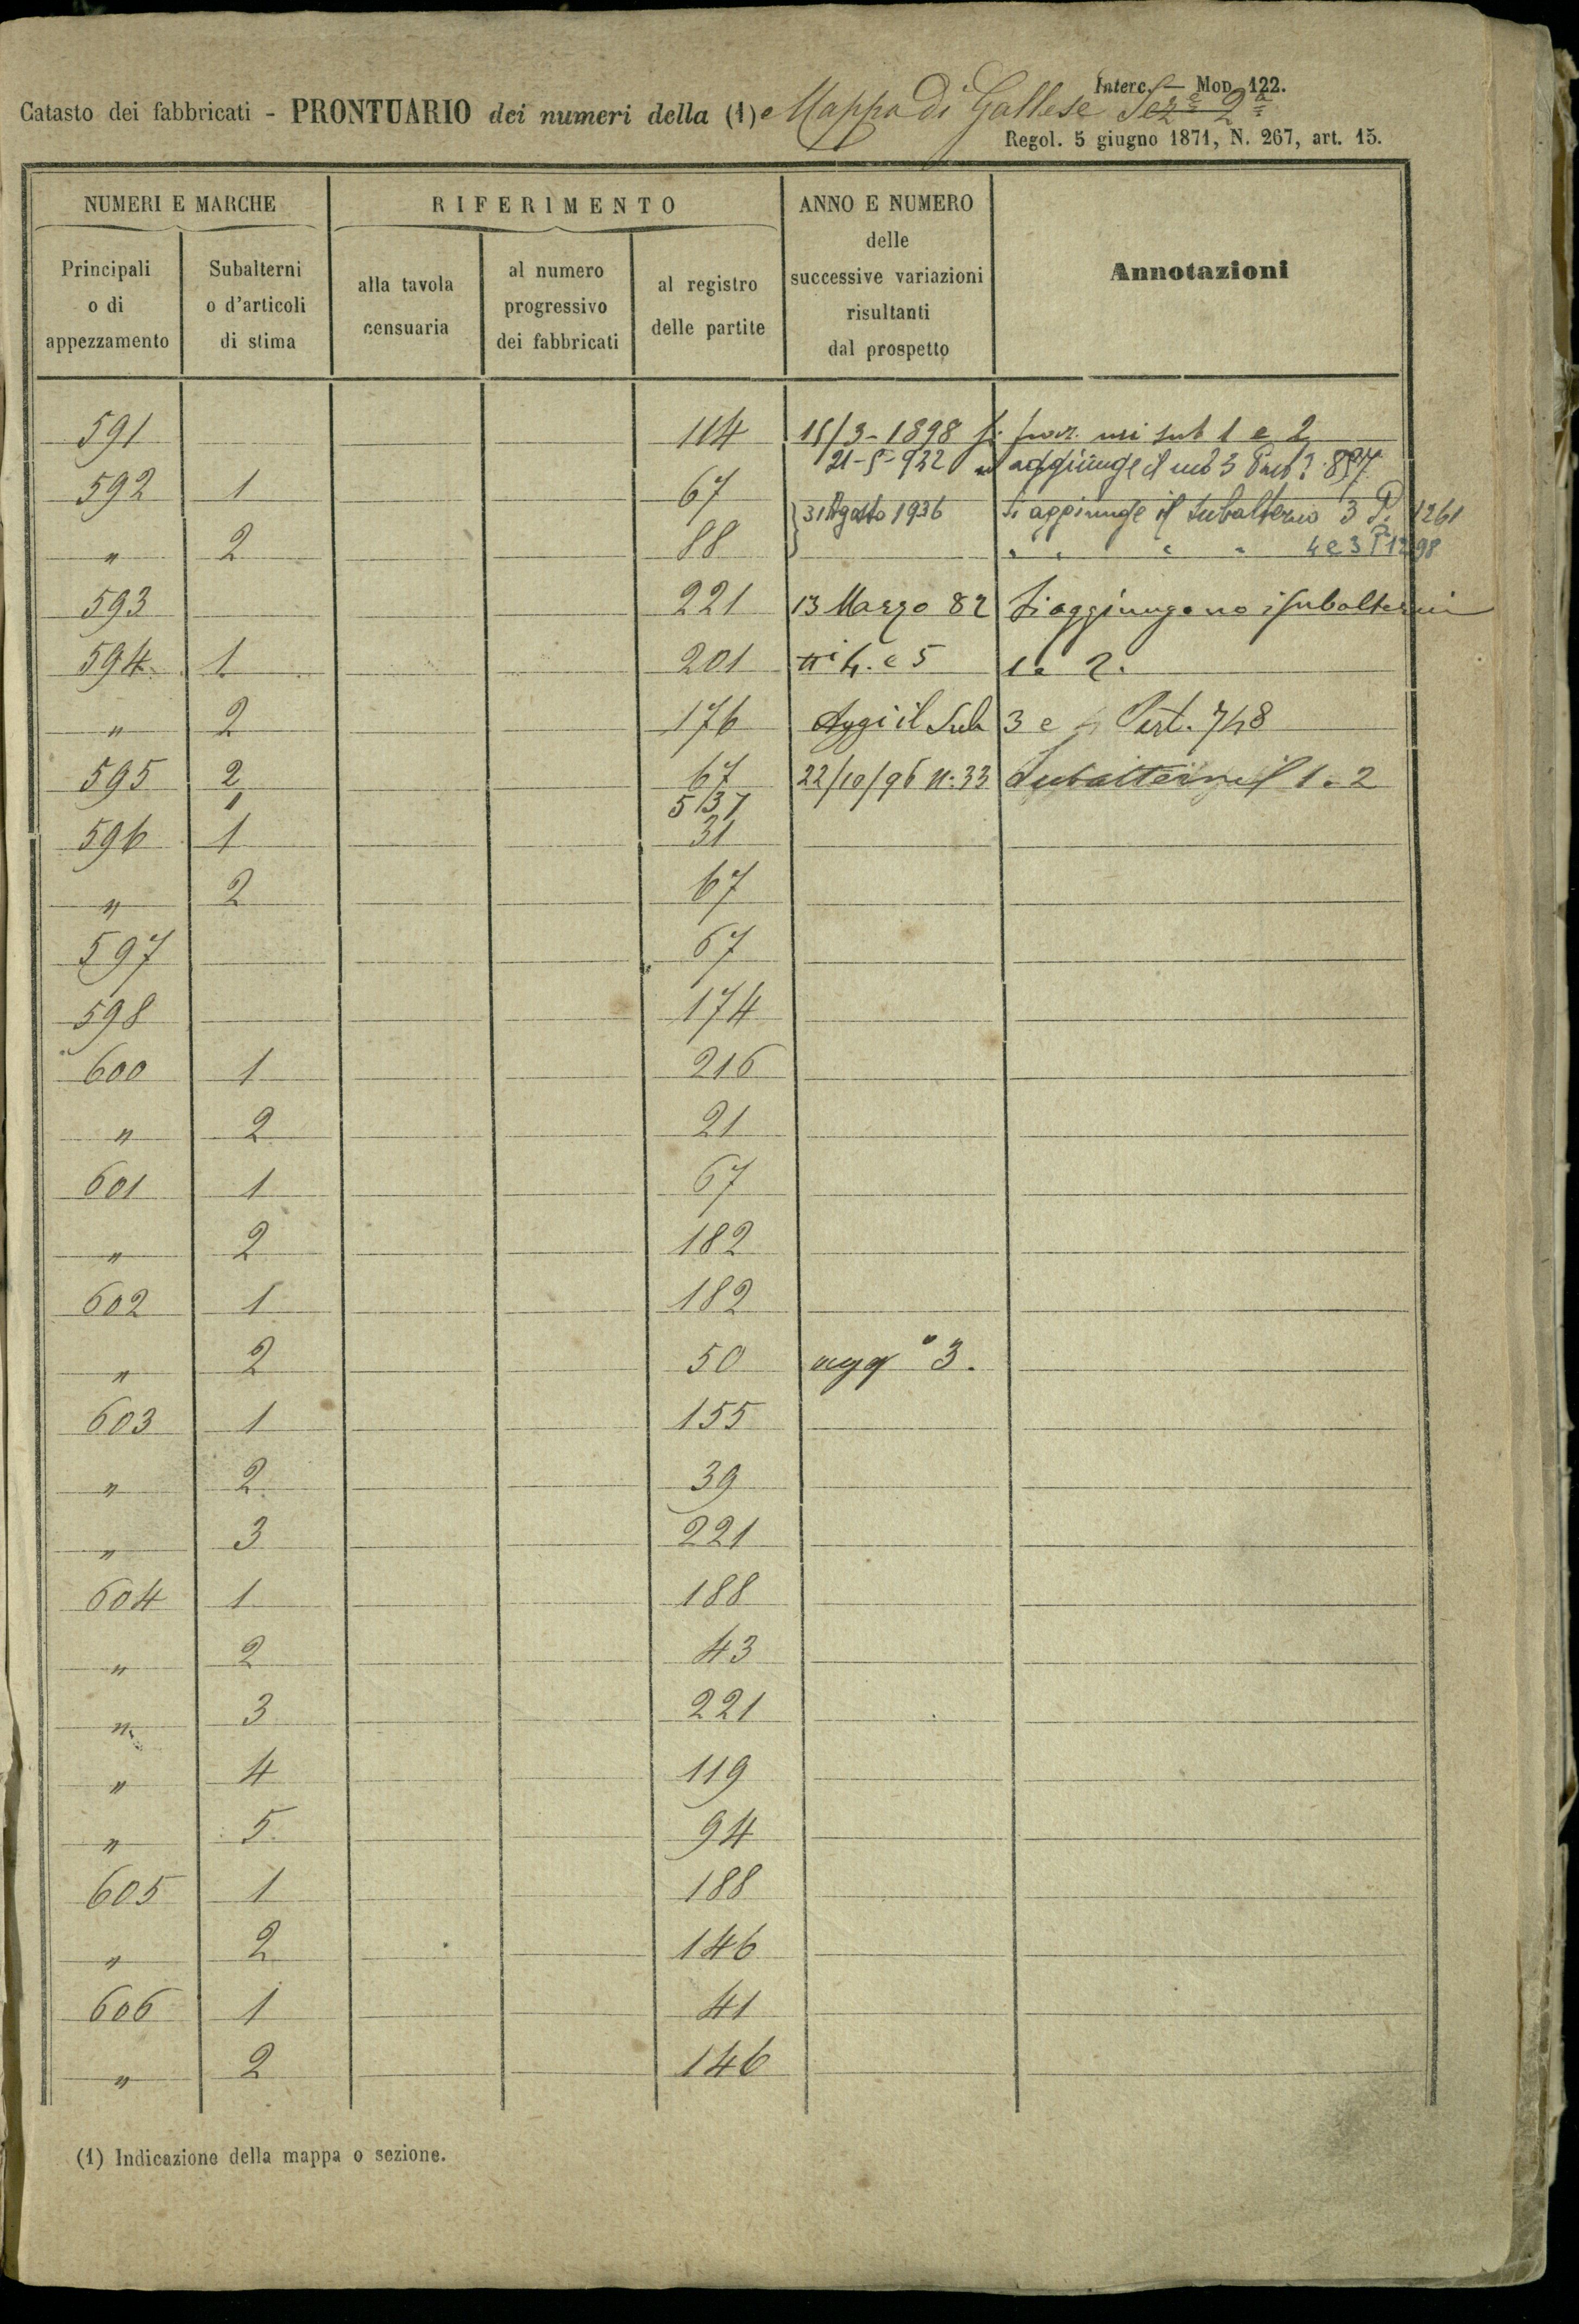 Interc. — Mod. 122.
Catasto dei fabbricati - PRONTUARIO dei numeri della (1) Mappa di Gallese Sez.e 2a
Regol. 5 giugno 1871, N. 267, art. 15.
NUMERI E MARCHE RIFERIMENTO ANNO E NUMERO delle successive variazioni risultanti dal prospetto Annotazioni
Principali o di appezzamento Subalterni o d'articoli di stima alla tavola censuaria al numero progressivo dei fabbricati al registro delle partite
591 114 15/3-1898 sub 1 e 2
21-5-932 aggiunge il sub 3
592 1 67 31 Agosto 1936 Si aggiunge il subalterno 3 P. 1261
" 2 88 " " " " 4 e 3 P. 1298
593 221 13 Marzo 82 Si aggiungono i subalterni
594 1 201 ni 4. e 5 1 e 2.
" 2 176 Aggi il Sub 3 e 4 Part. 748
595 2 67 22/10/96 n. 33 Subalterni 1. 2
1 537
596 1 31
" 2 67
597 67
598 174
600 1 216
" 2 21
601 1 67
" 2 182
602 1 182
" 2 50 agg° 3.
603 1 155
" 2 39
" 3 221
604 1 188
" 2 43
" 3 221
" 4 119
" 5 94
605 1 188
" 2 146
606 1 41
" 2 146
(1) Indicazione della mappa o sezione.